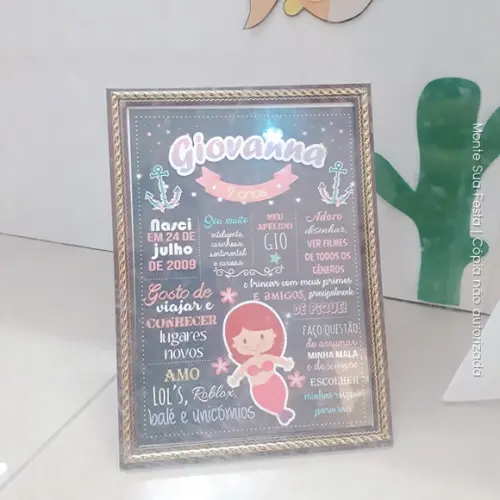 Giovanna
9 anos
Nasci
EM 24 DE
julho
DE 2009
Sou muito
inteligente,
carinhosa,
sentimental
e curiosa
MEU
APELIDO
GIO
Adoro
desenhar,
VER FILMES
DE TODOS OS
GÊNEROS
e brincar com meus primos
E AMIGOS, principalmente
DE PIQUE!
Gosto de
viajar e
CONHECER
lugares
novos
FAÇO QUESTÃO
de arrumar
MINHA MALA
e de sempre
ESCOLHER
minhas roupas
para sair
AMO
LOL'S, Roblox,
balé e unicórnios
Monte Sua Festa | Cópia não autorizada